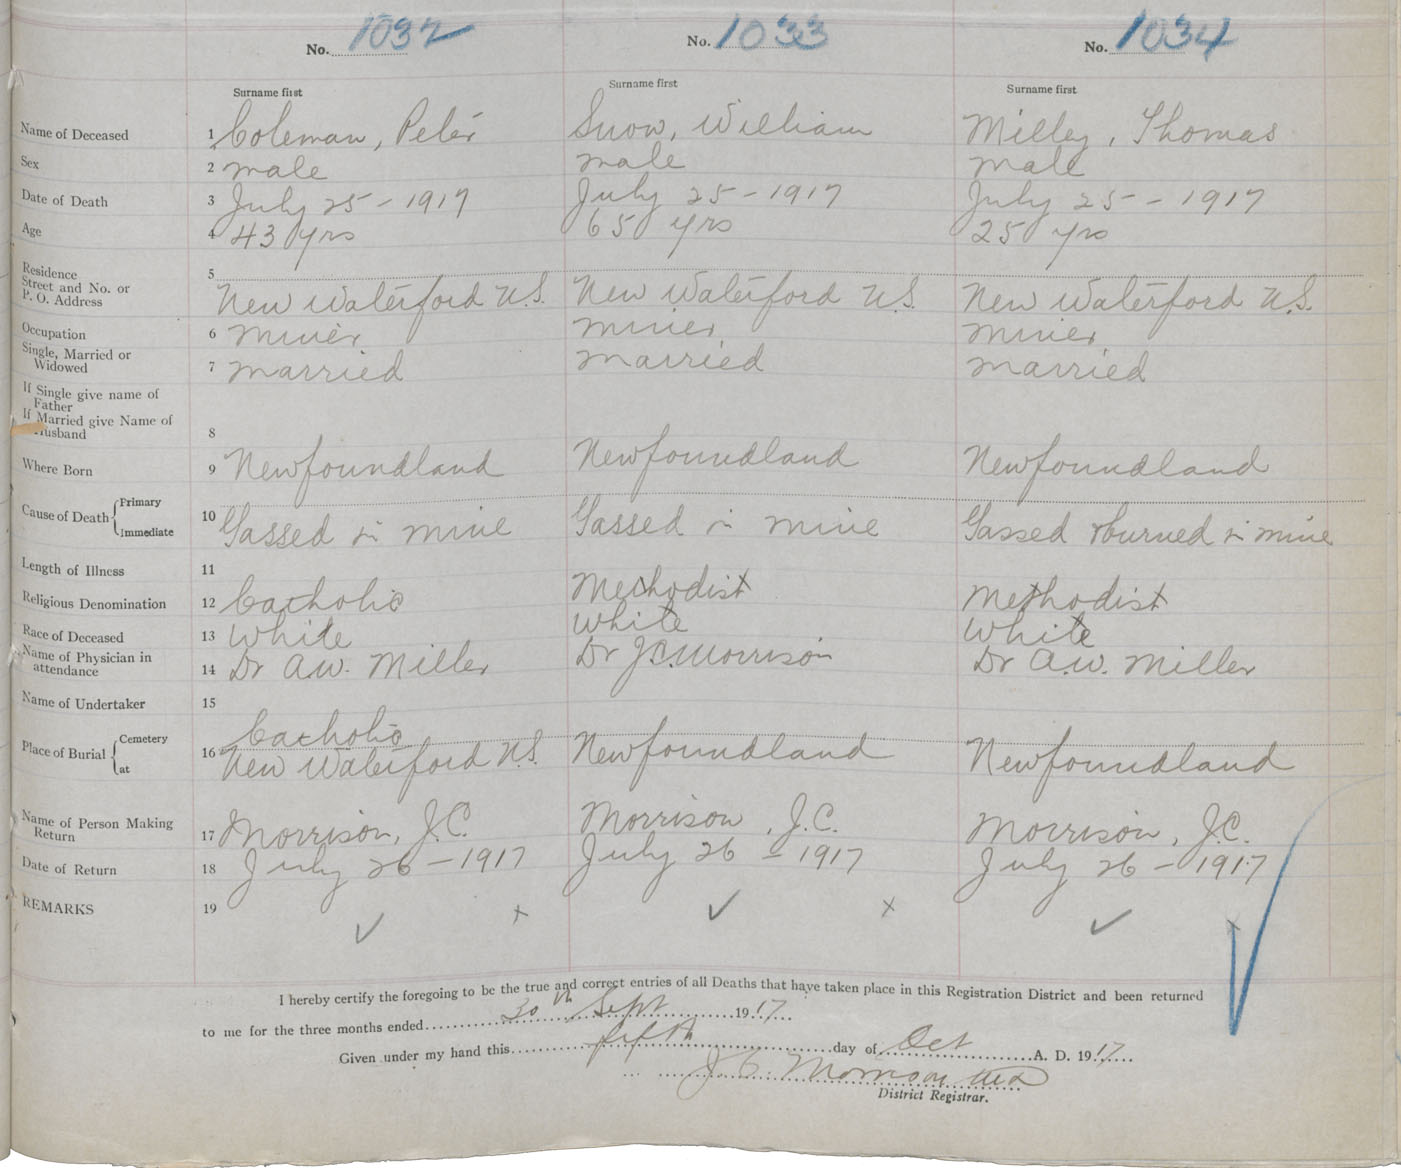 No. 1032 No. 1033 No. 1034
Surname first Surname first Surname first
Name of Deceased 1 Coleman, Peter Snow, William Milley, Thomas
Sex 2 male male male
Date of Death 3 July 25 - 1917 July 25 - 1917 July 25 - 1917
Age 4 43 yrs 65 yrs 25 yrs
Residence
Street and No. or
P. O. Address 5 New Waterford N.S. New Waterford N.S. New Waterford N.S.
Occupation 6 miner miner miner
Single, Married or
Widowed 7 married married married
If Single give name of
Father
If Married give Name of
Husband 8
Where Born 9 Newfoundland Newfoundland Newfoundland
Cause of Death { Primary
Immediate 10 Gassed in mine Gassed in mine Gassed & burned in mine
Length of Illness 11
Religious Denomination 12 Catholic Methodist Methodist
Race of Deceased 13 White White White
Name of Physician in
attendance 14 Dr A.W. Miller Dr J.C. Morrison Dr A.W. Miller
Name of Undertaker 15
Place of Burial { Cemetery Catholic
at 16 New Waterford N.S. Newfoundland Newfoundland
Name of Person Making
Return 17 Morrison, J.C. Morrison, J.C. Morrison, J.C.
Date of Return 18 July 26 - 1917 July 26 - 1917 July 26 - 1917
REMARKS 19 ✓ x ✓ x ✓ x
I hereby certify the foregoing to be the true and correct entries of all Deaths that have taken place in this Registration District and been returned
to me for the three months ended 30th Sept 1917
Given under my hand this fifth day of Oct A. D. 1917
J C Morrison MD
District Registrar.